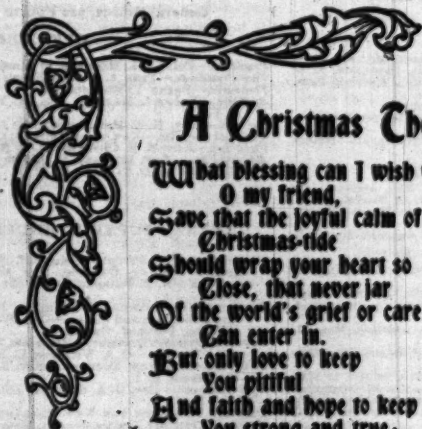 A Christmas Th
What blessing can I wish
O my friend,
Save that the joyful calm of
Christmas-tide
Should wrap your heart so
Close, that never jar
Of the world's grief or care
Can enter in.
But only love to keep
You pitiful
And faith and hope to keep
You strong and true.